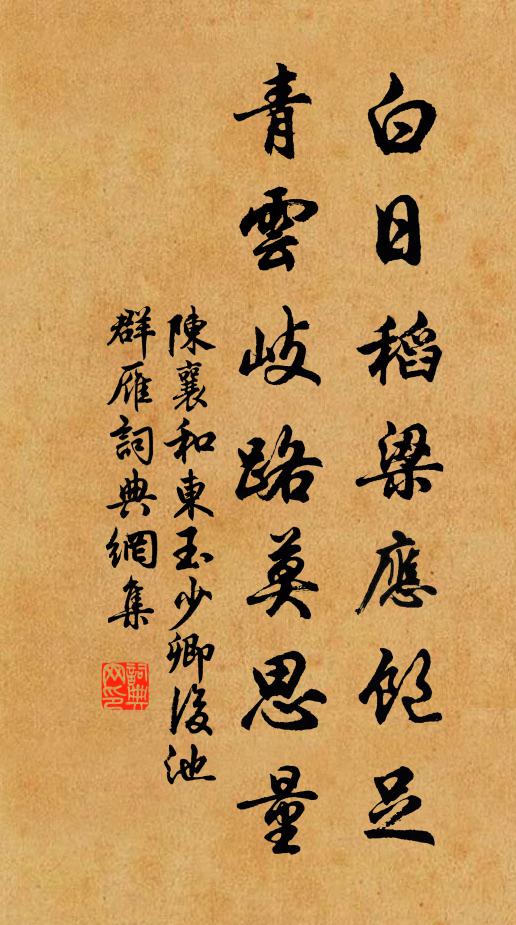 白日稻梁應飽足
青雲岐路莫思量
陳襄和東玉少卿後池
群雁詞典網集
詞典网印